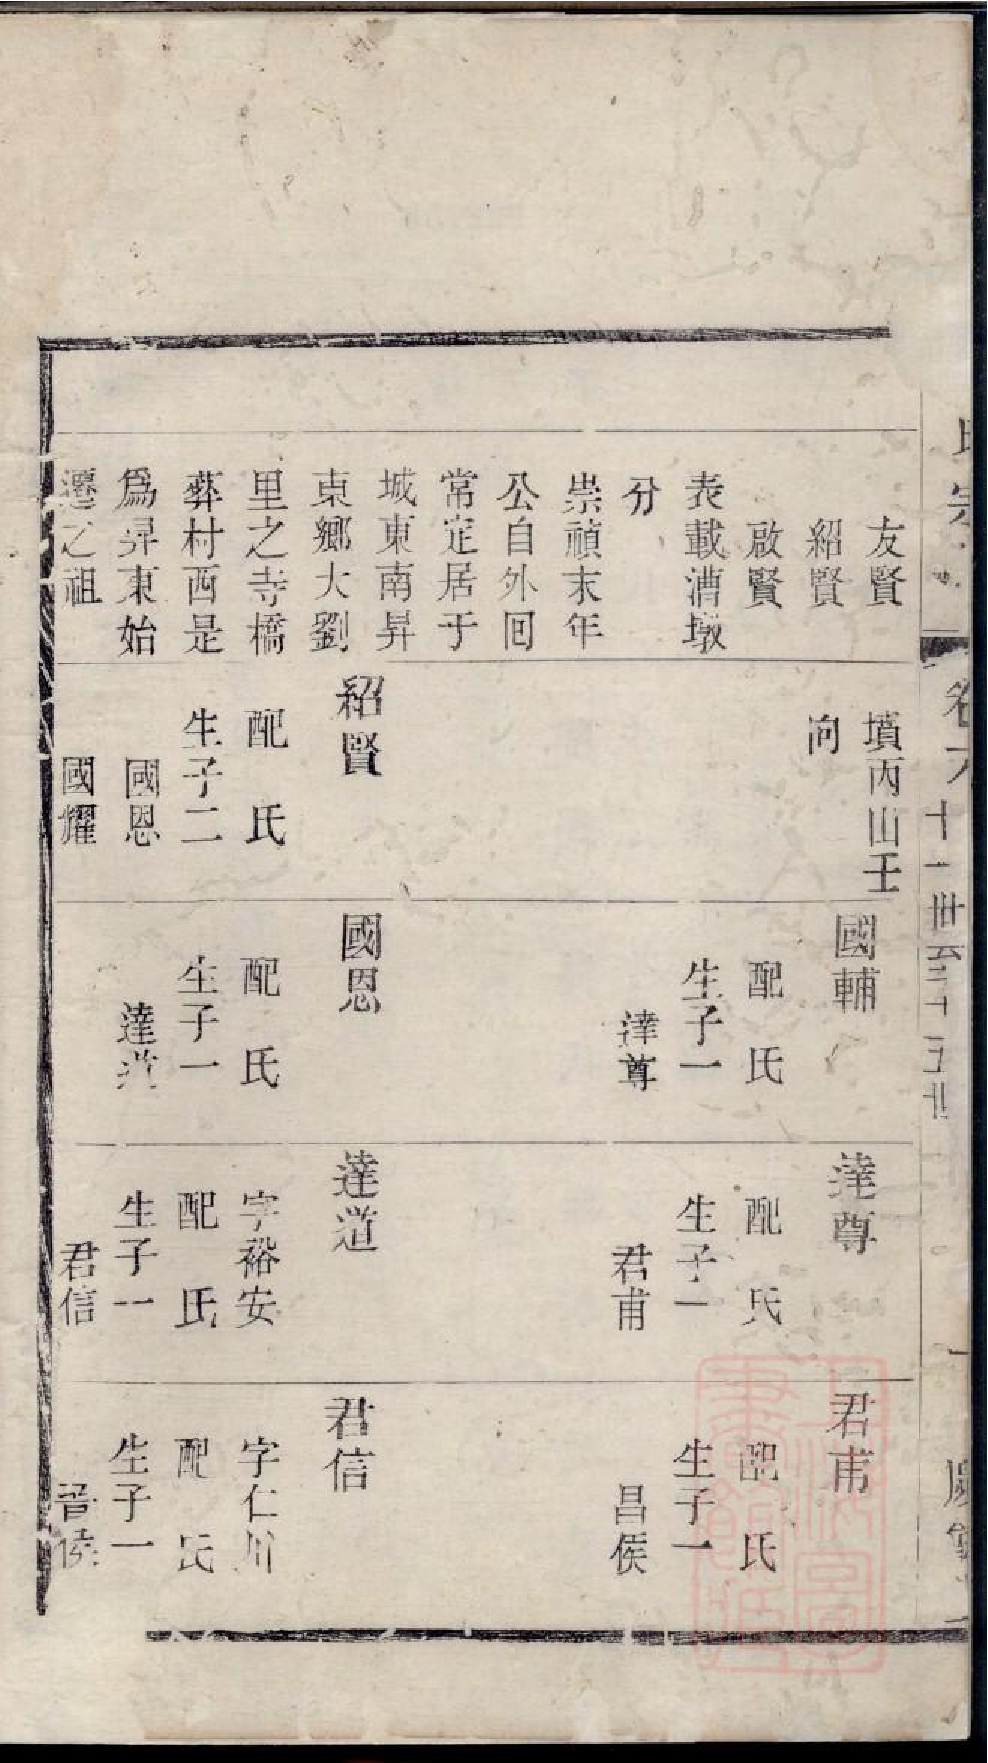 友賢
紹賢
啟賢
表載漕墩
分
崇禎末年
公自外回
常定居于
城東南昇
東鄉大劉
里之寺橋
彝村西是
為昇東始
遷之祖
墳丙山壬
向
紹賢
配　氏
生子二
國恩
國耀
國輔
配　氏
生子一
達尊
國恩
配　氏
生子一
達道
達尊
配　氏
生子一
君甫
達道
字裕安
配　氏
生子一
君信
君甫
配　氏
生子一
昌侯
君信
字仁川
配　氏
生子一